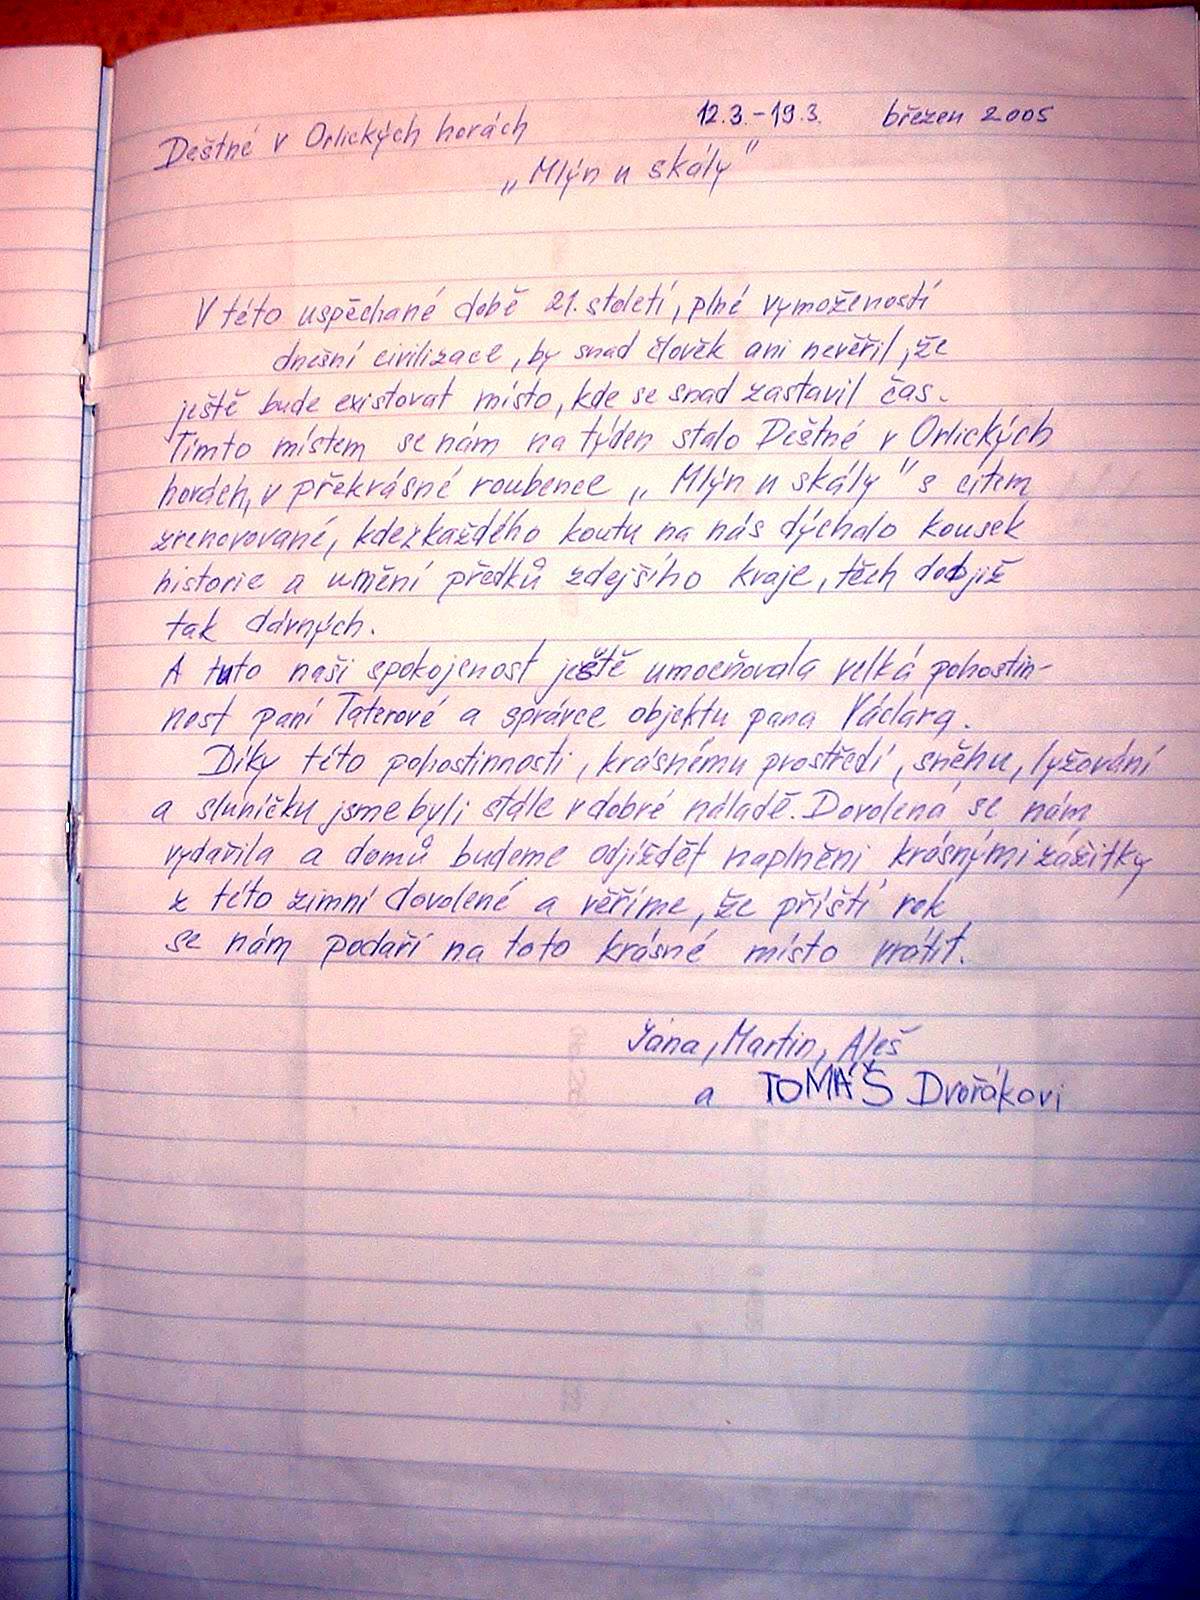 Deštné v Orlických horách 12.3.-19.3. březen 2005
„Mlýn u skály"
V této uspěchané době 21. století, plné vymožeností
dnešní civilizace, by snad člověk ani nevěřil, že
ještě bude existovat místo, kde se snad zastavil čas.
Tímto místem se nám na týden stalo Deštné v Orlických
horách, v překrásné roubence „Mlýn u skály" s citem
zrenovované, kde z každého koutu na nás dýchalo kousek
historie a umění předků zdejšího kraje, těch dob již
tak dávných.
A tuto naši spokojenost ještě umocňovala velká pohostin-
nost paní Taterové a správce objektu pana Václava.
Díky této pohostinnosti, krásnému prostředí, sněhu, lyžování
a sluníčku jsme byli stále v dobré náladě. Dovolená se nám
vydařila a domů budeme odjíždět naplněni krásnými zážitky
z této zimní dovolené a věříme, že příští rok
se nám podaří na toto krásné místo vrátit.
Jana, Martin, Aleš
a TOMÁŠ Dvořákovi